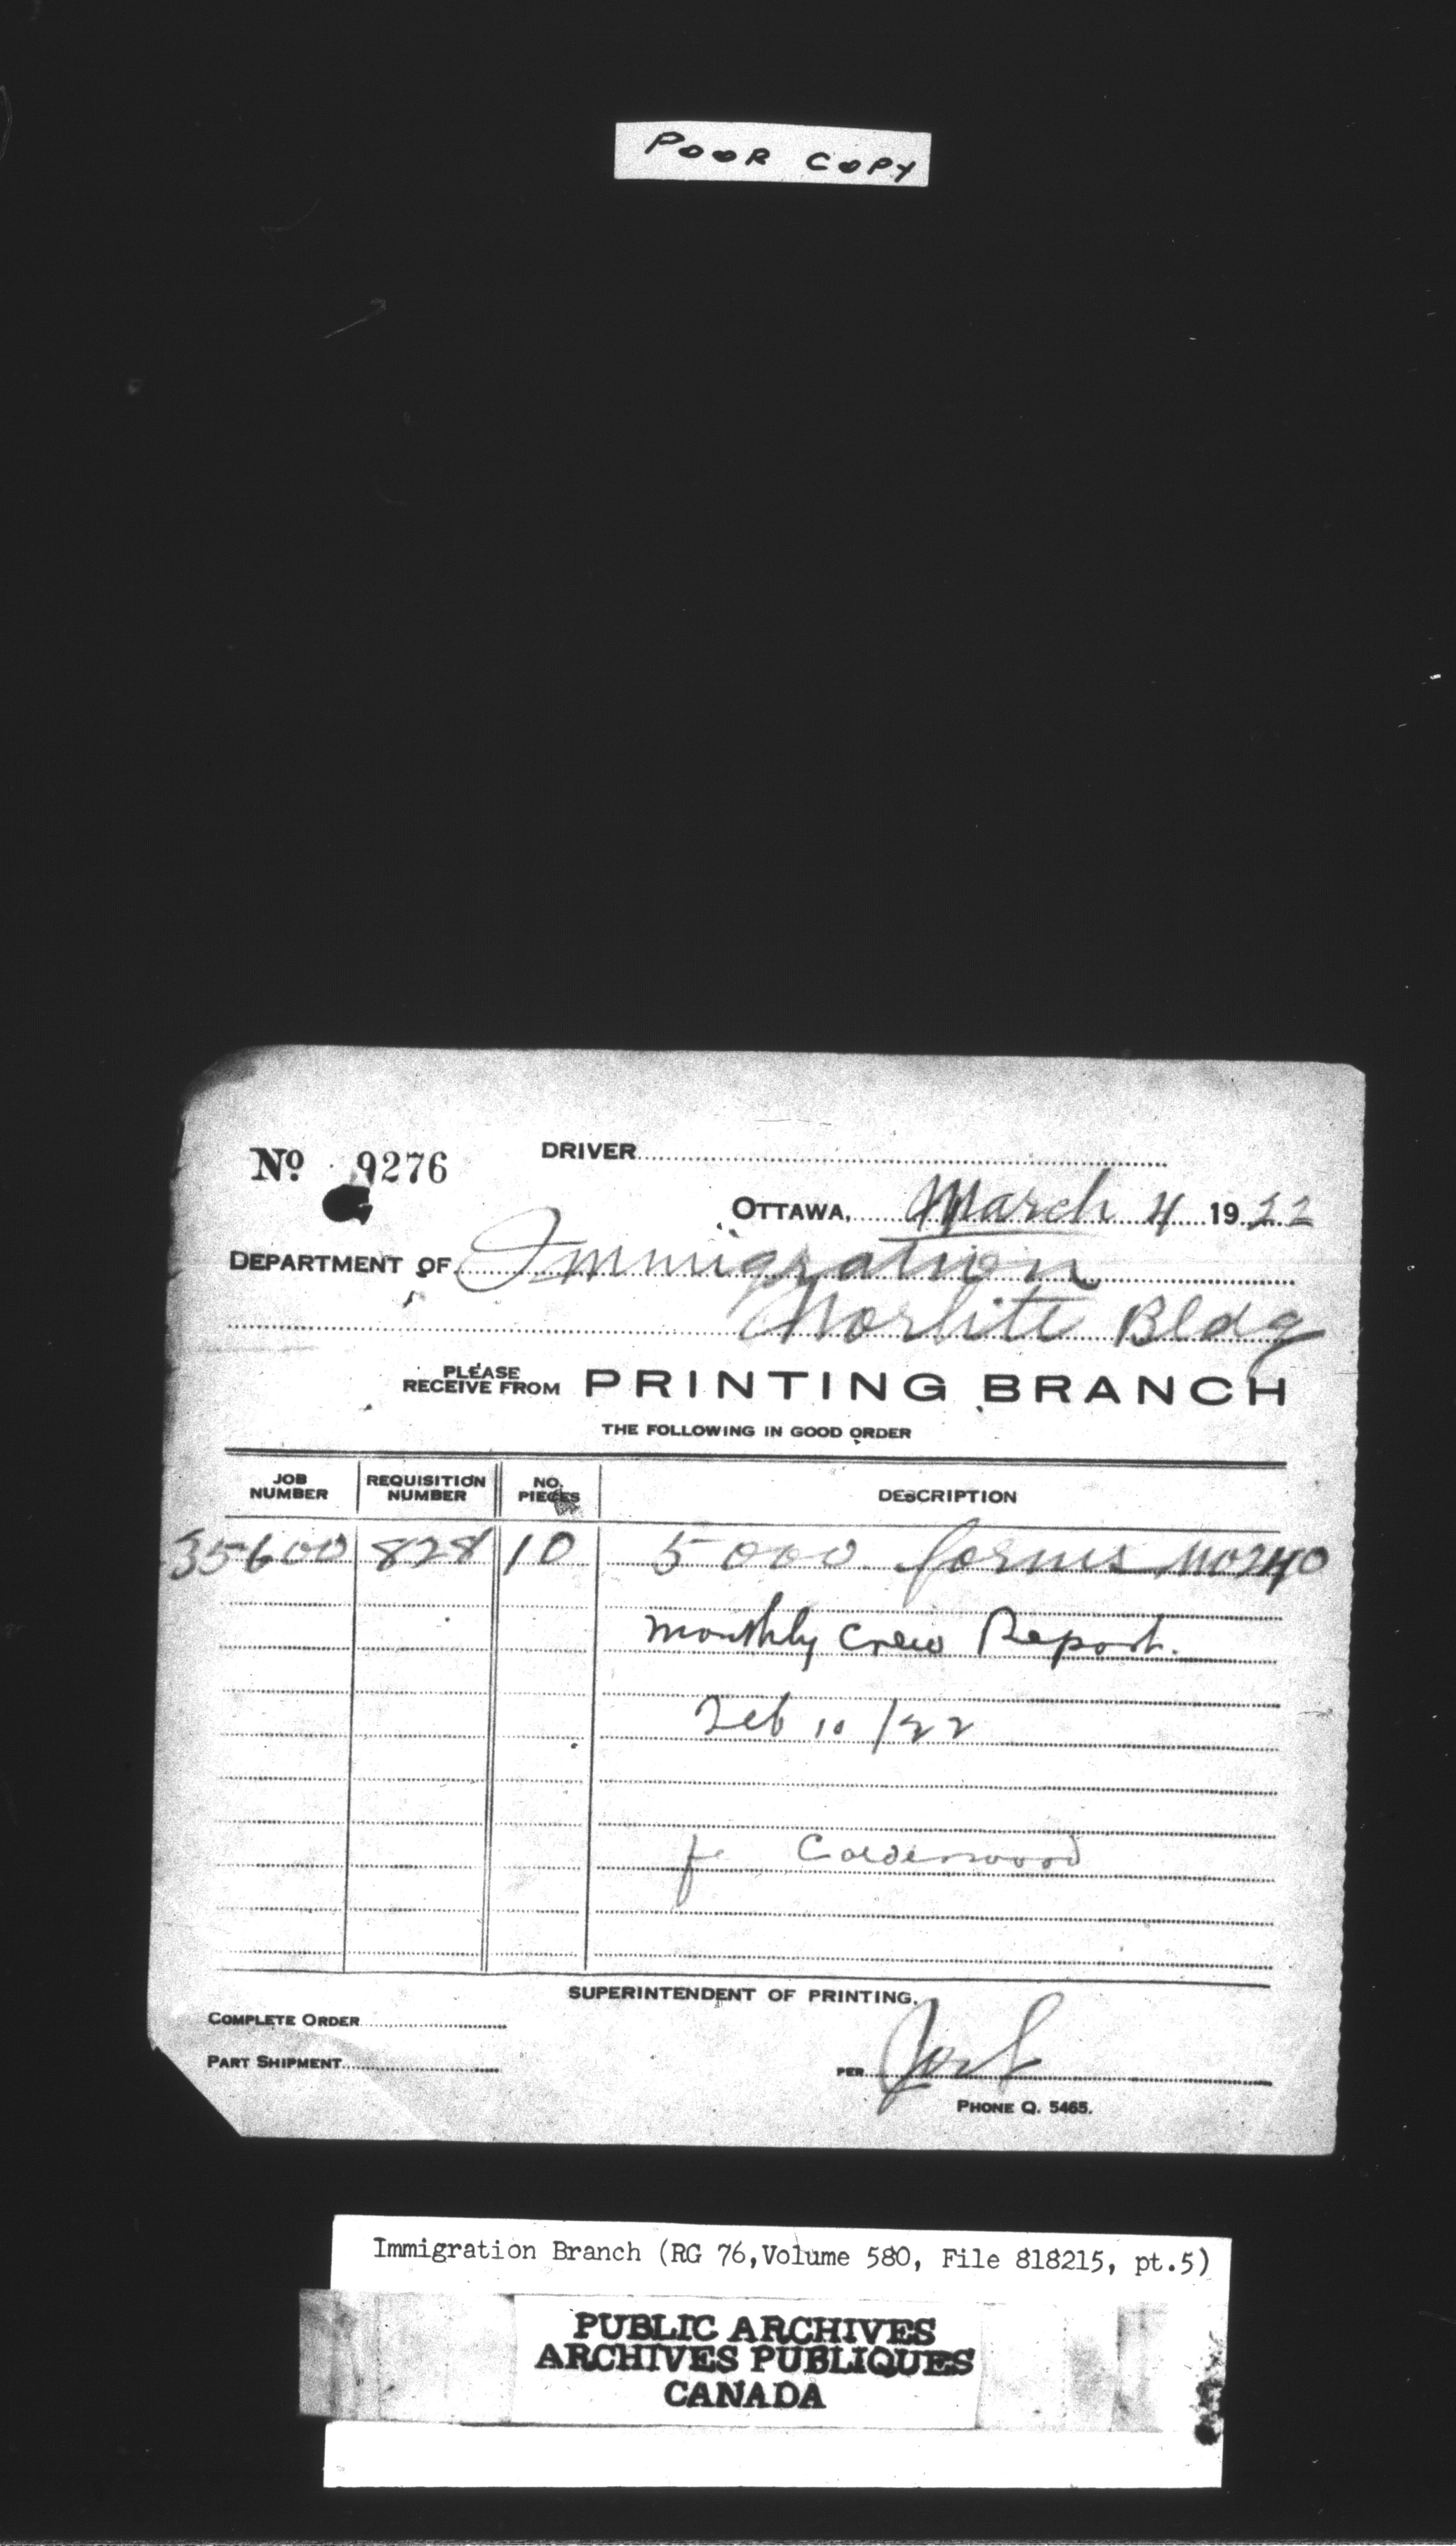 POOR COPY
No 9276 DRIVER
OTTAWA, March 4 1922
DEPARTMENT OF Immigration
Norlite Bldg
PLEASE RECEIVE FROM PRINTING BRANCH
THE FOLLOWING IN GOOD ORDER
JOB NUMBER REQUISITION NUMBER NO. PIECES DESCRIPTION
35600 828 10 5000 forms No 240
Monthly Crew Report.
Feb 10/22
Calderwood
SUPERINTENDENT OF PRINTING.
COMPLETE ORDER
PART SHIPMENT
PER
PHONE Q. 5465.
Immigration Branch (RG 76, Volume 580, File 818215, pt.5)
PUBLIC ARCHIVES
ARCHIVES PUBLIQUES
CANADA